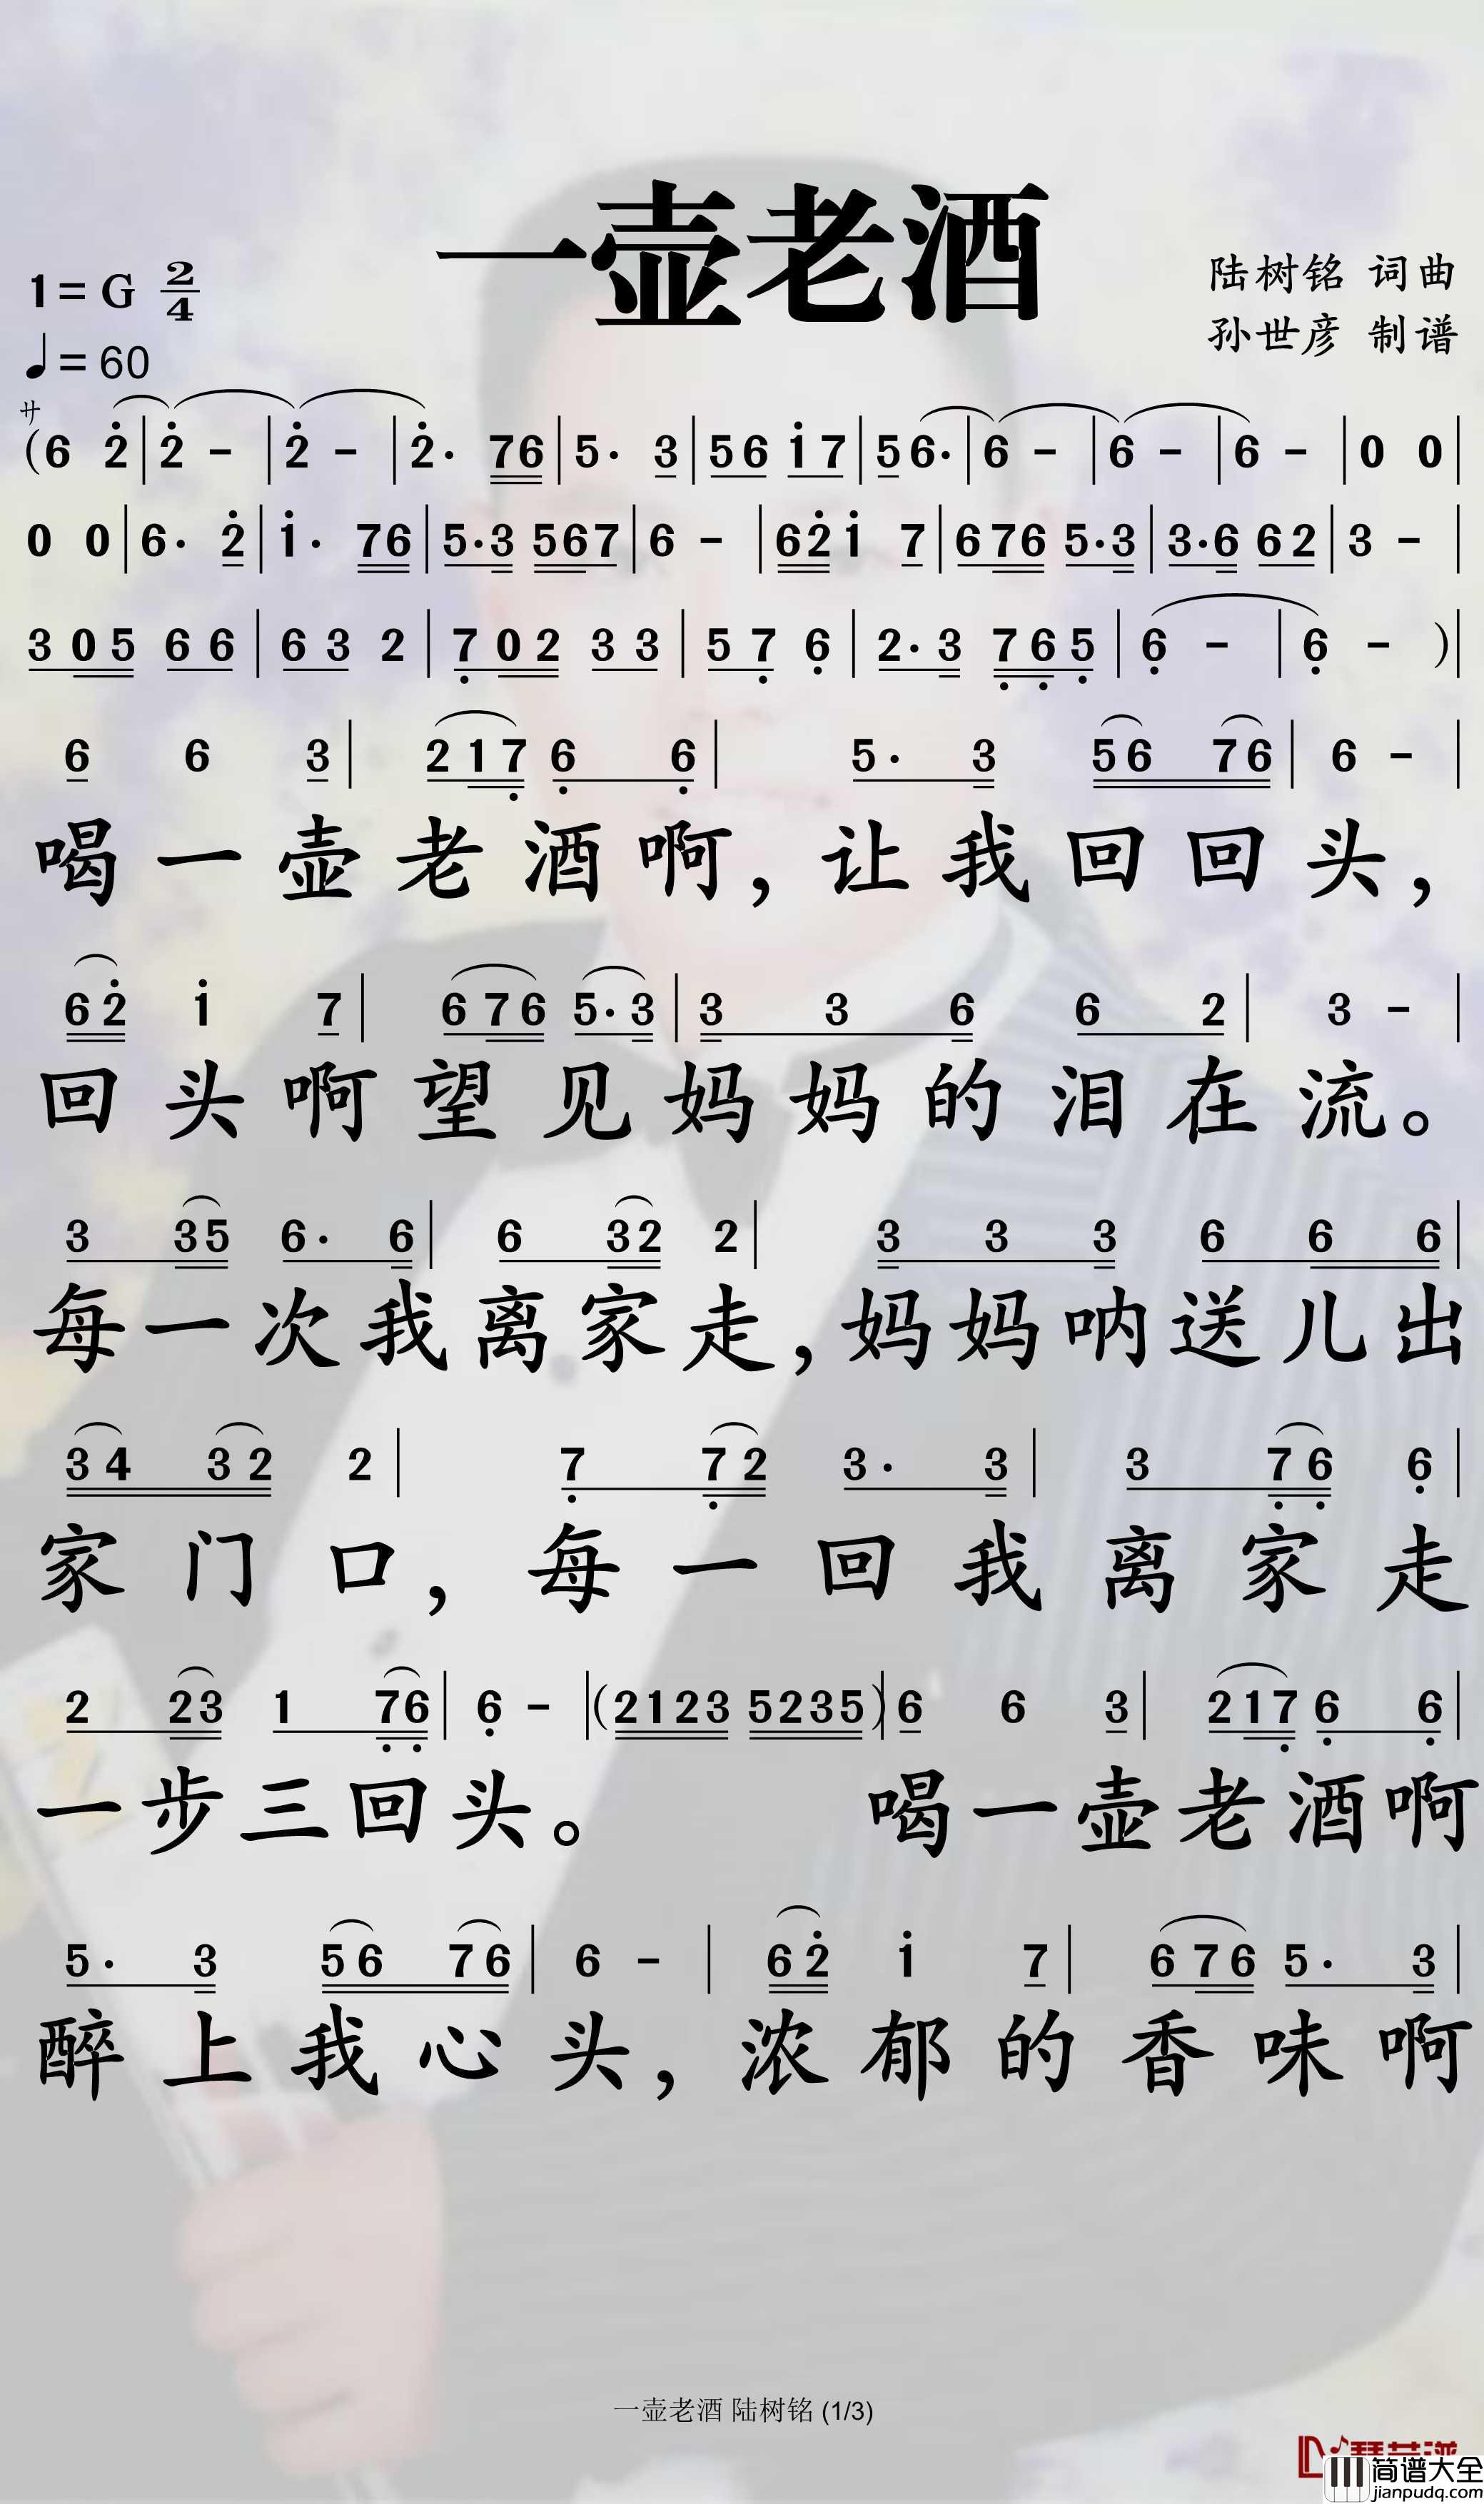 一壶老酒
1=G 2/4
陆树铭 词曲
♩=60
孙世彦 制谱
サ
(6 2̇ | 2̇ - | 2̇ - | 2̇· 76 | 5· 3 | 56 1̇7 | 56· | 6 - | 6 - | 6 - | 0 0 |
0 0 | 6· 2̇ | 1̇· 76 | 5·3 567 | 6 - | 62̇1̇ 7 | 676 5·3 | 3·6 62 | 3 - |
305 66 | 63 2 | 7̣02 33 | 57̣ 6̣ | 2·3 7̣6̣5̣ | 6̣ - | 6̣ - ) |
6 6 3 | 217̣ 6̣ 6̣ | 5· 3 56 76 | 6 - |
喝一壶老酒啊，让我回回头，
62̇ 1̇ 7 | 676 5·3 | 3 3 6 6 2 | 3 - |
回头啊望见妈妈的泪在流。
3 35 6· 6 | 6 32 2 | 3 3 3 6 6 6 |
每一次我离家走，妈妈呐送儿出
34 32 2 | 7̣ 7̣2 3· 3 | 3 7̣6̣ 6̣ |
家门口，每一回我离家走
2 23 1 7̣6̣ | 6̣ - | (2123 5235) | 6 6 3 | 217̣ 6̣ 6̣ |
一步三回头。 喝一壶老酒啊
5· 3 56 76 | 6 - | 62̇ 1̇ 7 | 676 5· 3 |
醉上我心头，浓郁的香味啊
一壶老酒 陆树铭 (1/3)
简谱大全
jianpudq.com